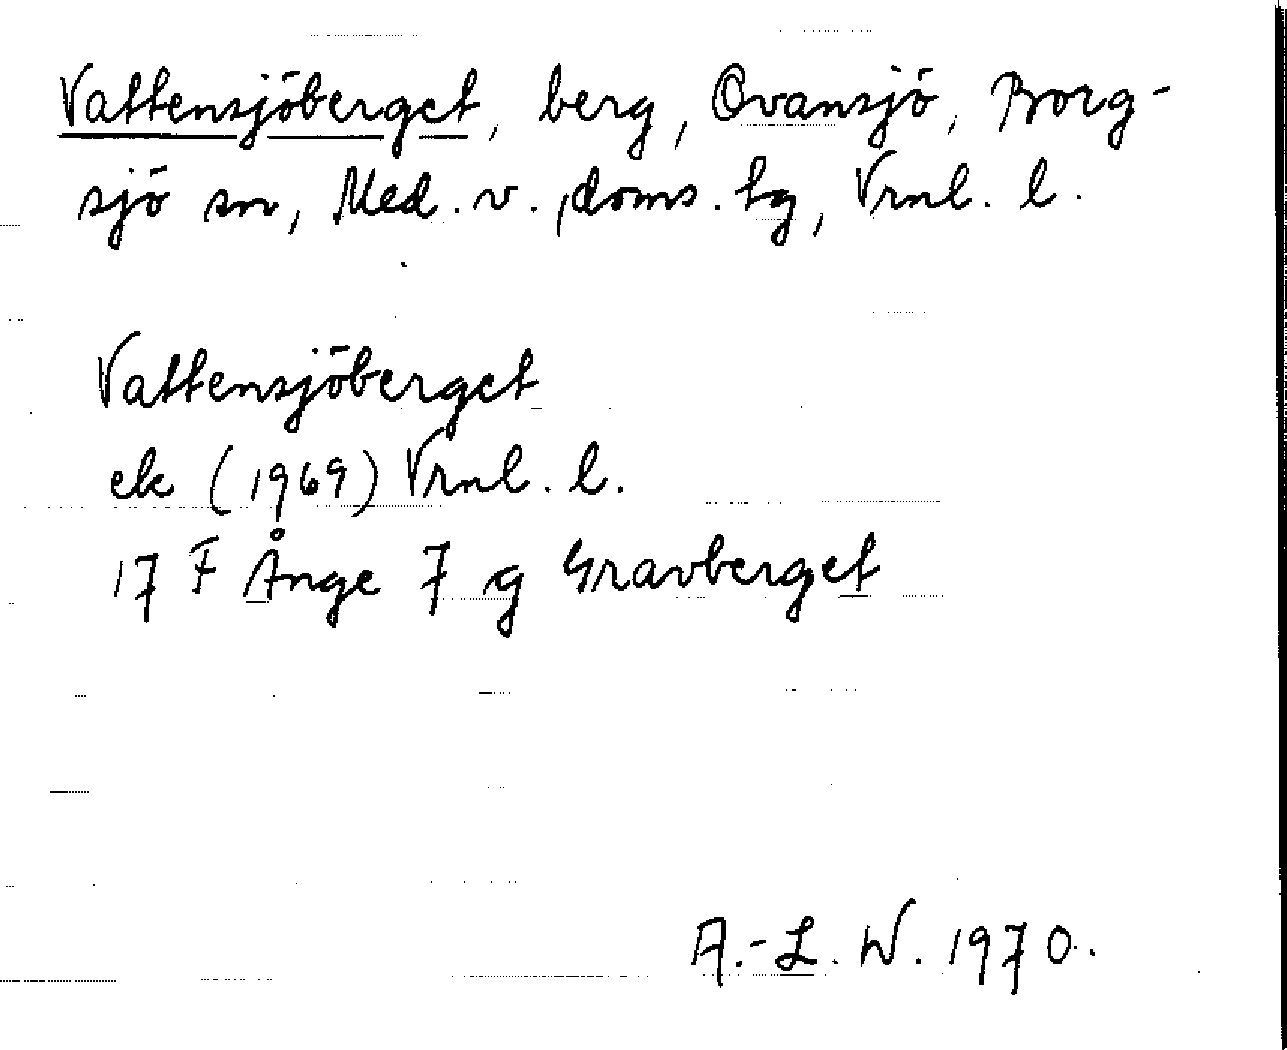 Vattensjöberget, berg, Ovansjö, Borg-
sjö sn, Med. v. doms. hg, Vrnl. l.
Vattensjöberget
ek (1969) Vrnl. l.
17 F Ånge 7 g Gravberget
A.-L. W. 1970.